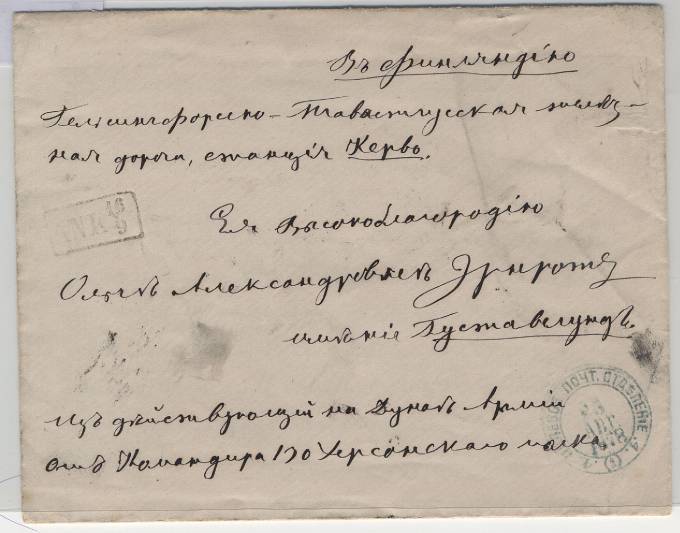 Въ Финляндію
Гельсингфорско-Тавастгусская желѣз-
ная дорога, станція Керво.
ANK 16/9
Ея Высокоблагородію
Ольгѣ Александровнѣ Эрнротъ
имѣніе Густавелундъ.
Изъ дѣйствующей на Дунаѣ Арміи
отъ Командира 130 Херсонскаго полка
ПОЧТ. ОТДѢЛЕНІЕ
АВГ
1878